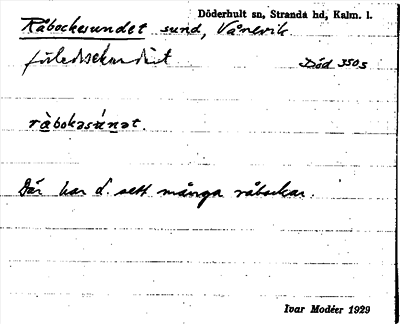 Döderhult sn, Stranda hd, Kalm. l.
Råbockesundet sund, Vånevik
förledssekundärt
Död 3505
ràbokəsúnət.
Där har d. sett många råbockar.
Ivar Modéer 1929